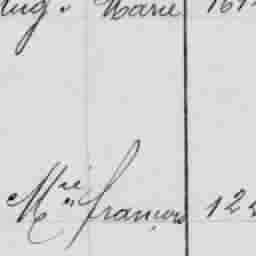 Aug. Marie 161
Mie françois 12